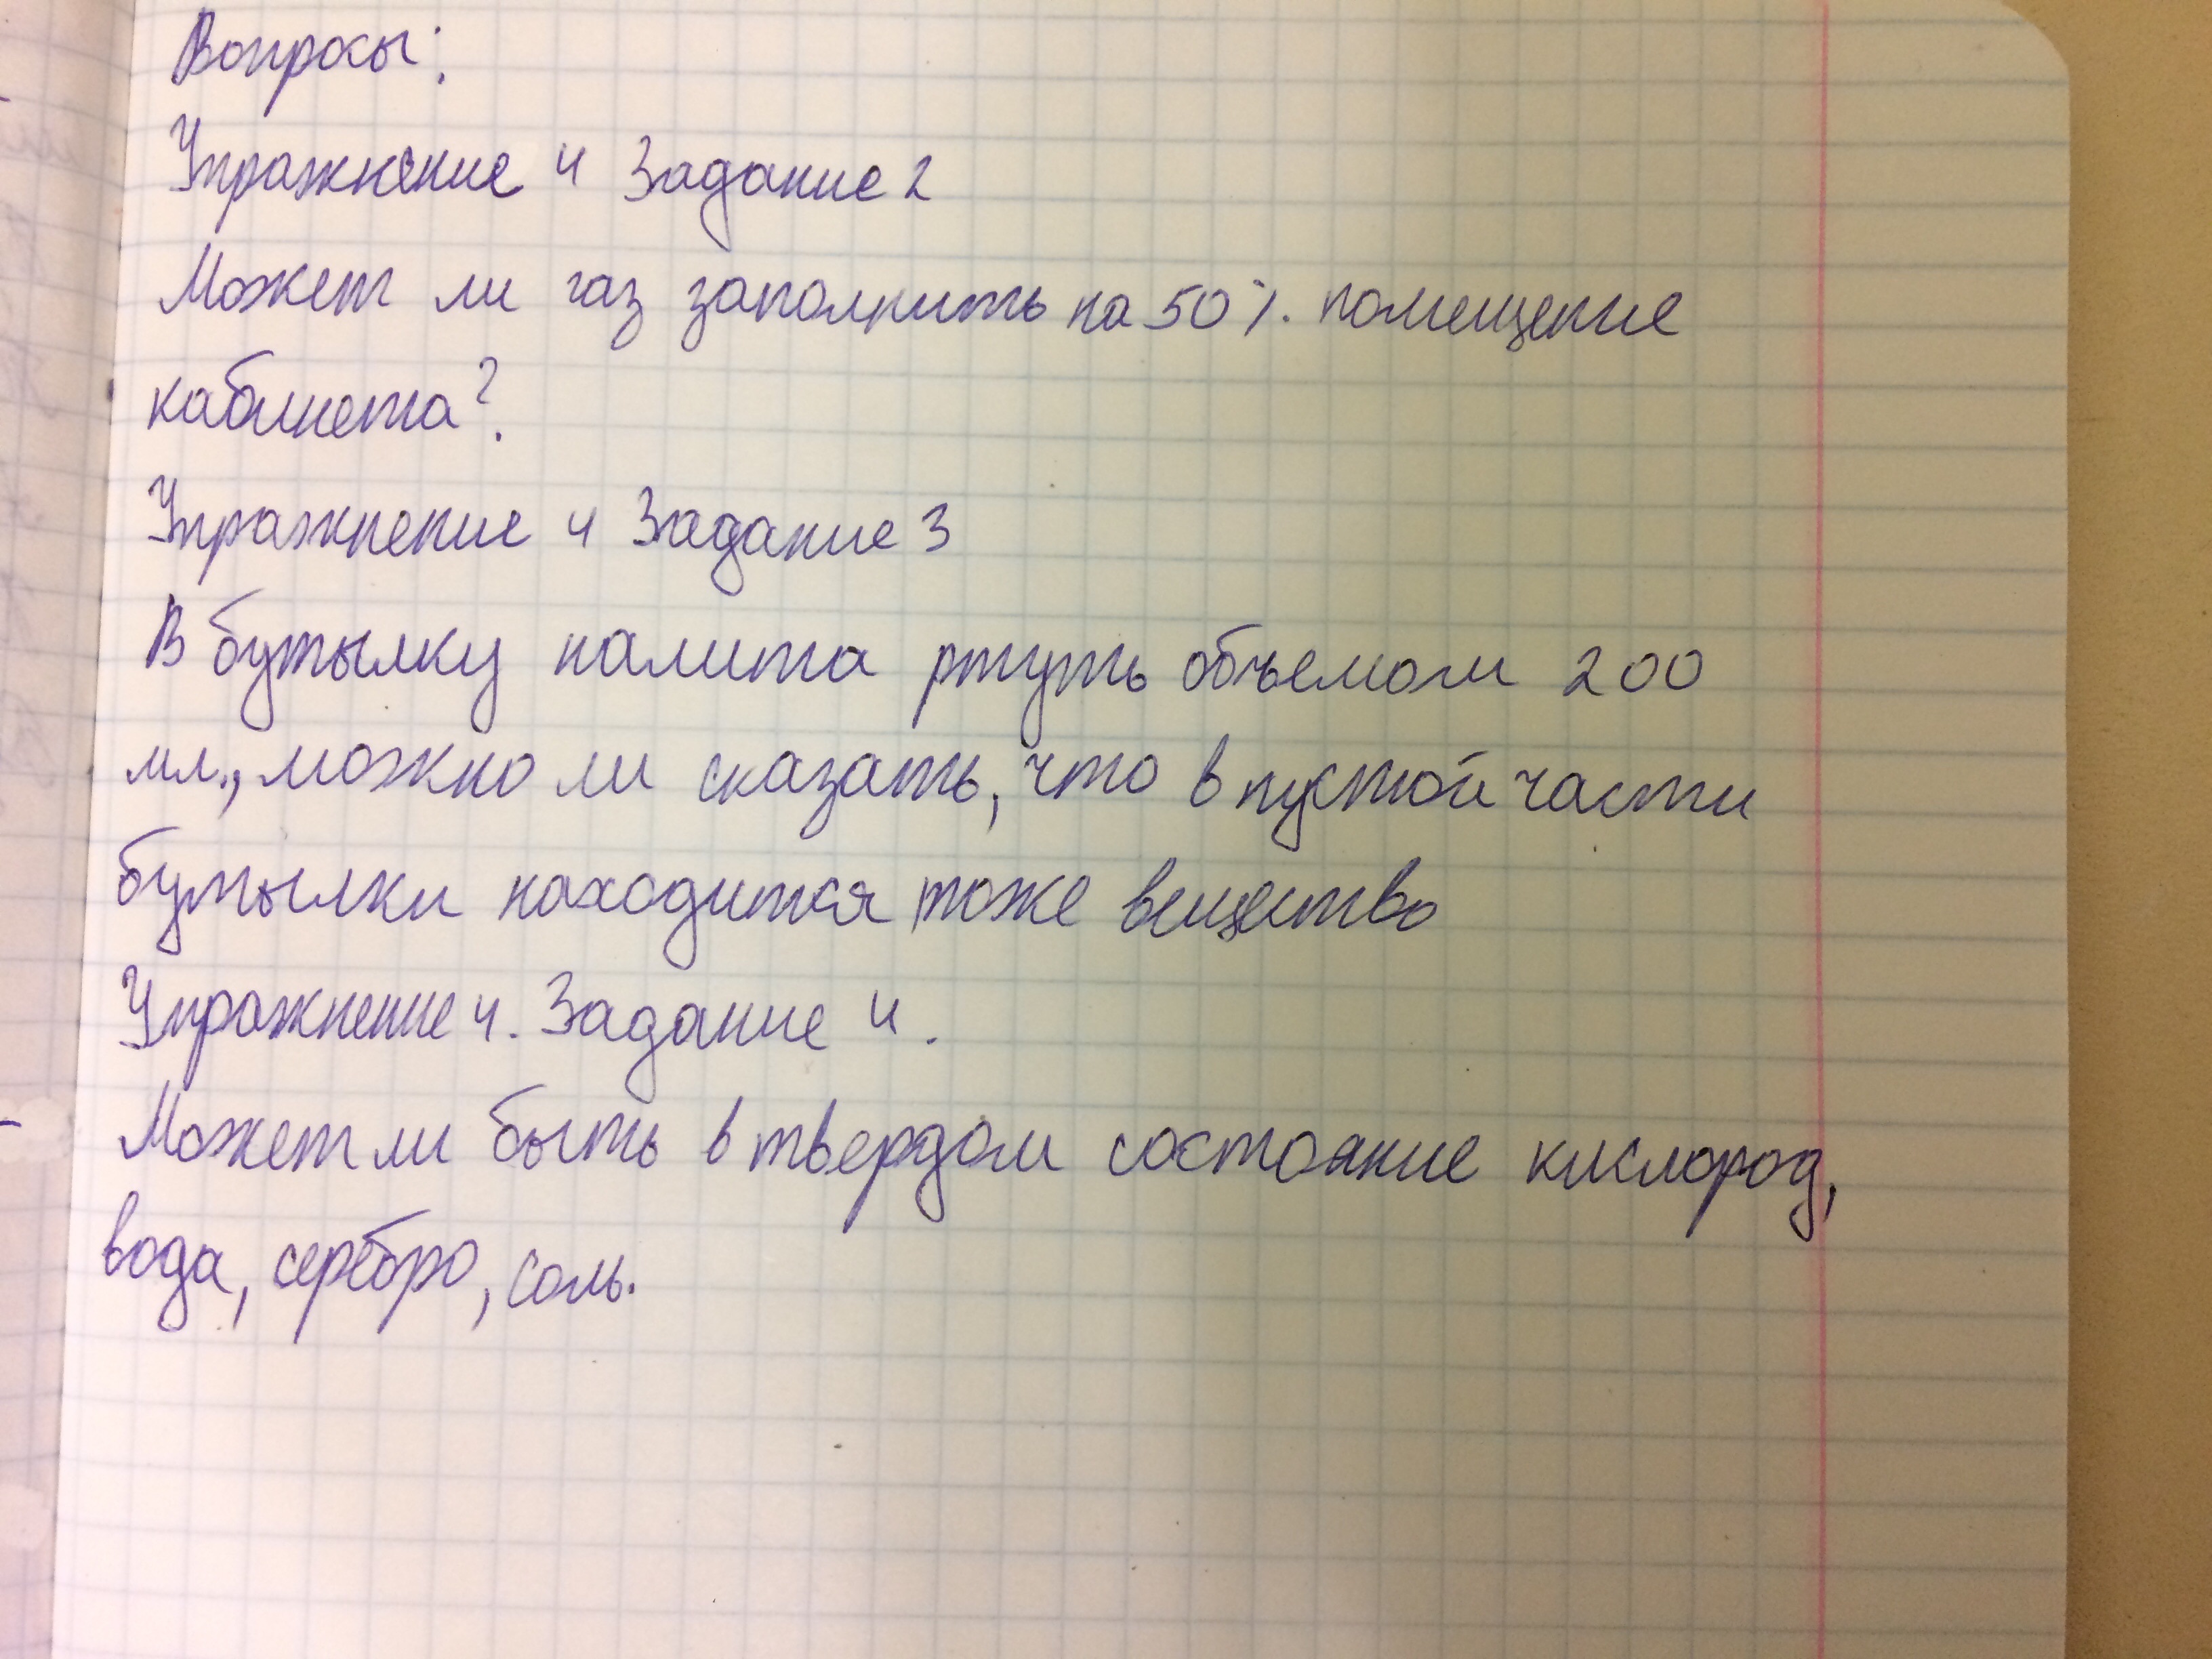 Вопросы:
Упражнение 4 Задание 2
Может ли газ заполнить на 50%. помещение
кабинета?
Упражнение 4 Задание 3
В бутылку налита ртуть объемом 200
мл., можно ли сказать, что в пустой части
бутылки находится тоже вещество
Упражнение 4. Задание 4.
Может ли быть в твердом состояние кислород,
вода, серебро, соль.